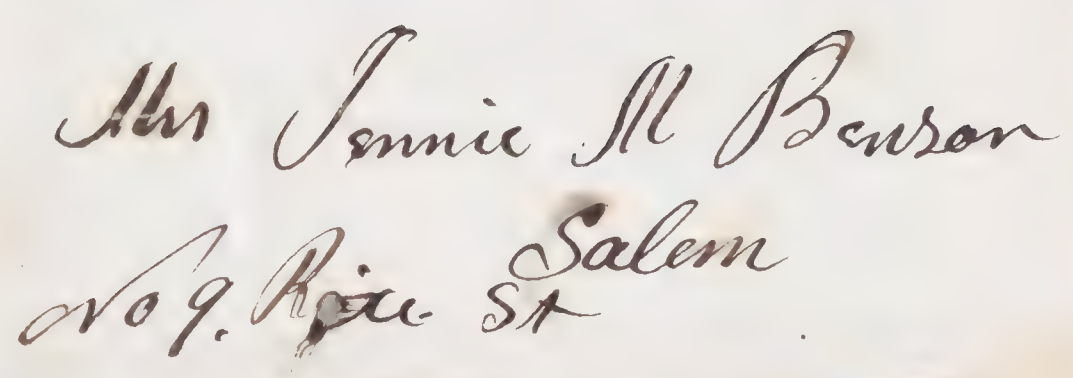 Mrs Jennie M Benson
Salem
No 9. Rice St